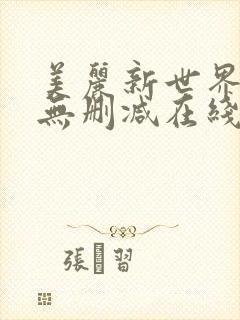 美麗新世界
無刪减在綫
張 習